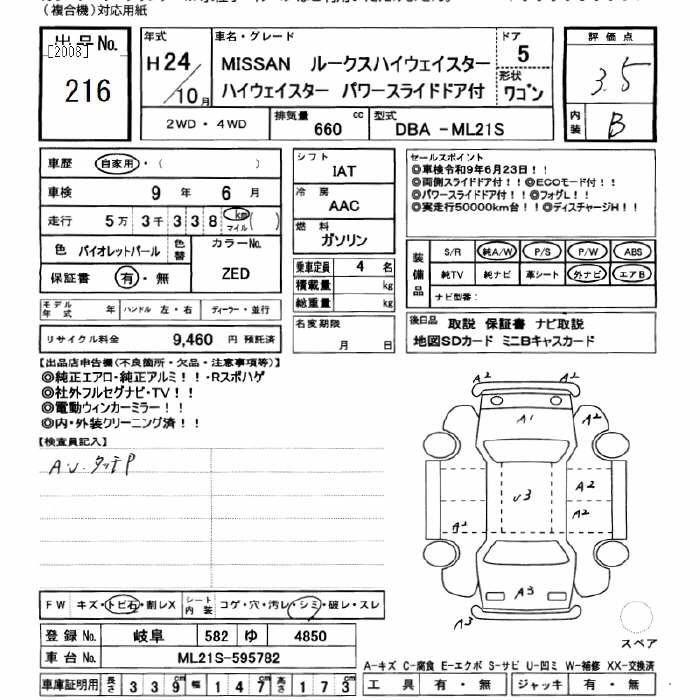 (複合機)対応用紙
出品No.
[2008]
216
年式
H24/10月
車名・グレード
MISSAN ルークスハイウェイスター
ハイウェイスター パワースライドドア付
ドア
5
形状
ワゴン
評価点
3.5
内装
B
2WD・4WD
排気量 660 cc
型式 DBA -ML21S
車歴 自家用・( )
車検 9 年 6 月
走行 5万 3千 3 3 8 km マイル( )
色 バイオレットパール 色替
カラーNo.
ZED
保証書 有・無
シフト
IAT
冷房
AAC
燃料
ガソリン
乗車定員 4 名
積載量 kg
総重量 kg
セールスポイント
◎車検令和9年6月23日!!
◎両側スライドドア付!!◎ECOモード付!!
◎パワースライドドア付!!◎フォグL!!
◎実走行50000km台!!◎ディスチャージH!!
装備品
S/R 純A/W P/S P/W ABS
純TV 純ナビ 革シート 外ナビ エアB
ナビ型番:
モデル年式 年 ハンドル 左・右 ディーラー・並行
リサイクル料金 9,460 円 預託済
名変期限
月 日
後日品 取説 保証書 ナビ取説
地図SDカード ミニBキャスカード
【出品店申告欄(不良箇所・欠品・注意事項等)】
◎純正エアロ・純正アルミ!!・Rスポハゲ
◎社外フルセグナビ・TV!!
◎電動ウィンカーミラー!!
◎内・外装クリーニング済!!
【検査員記入】
A.U.タッチP
A2
A2
A2
A1
U3
A2
A2
A2
A3
A2
A3
スペア
FW キズ・トビ石・割レX
シート内装 コゲ・穴・汚レ・シミ・破レ・スレ
登録No. 岐阜 582 ゆ 4850
車台No. ML21S-595782
車庫証明用 長さ 3 3 9 cm 幅 1 4 7 cm 高さ 1 7 3 cm
A-キズ C-腐食 E-エクボ S-サビ U-凹ミ W-補修 XX-交換済
工具 有・無 ジャッキ 有・無